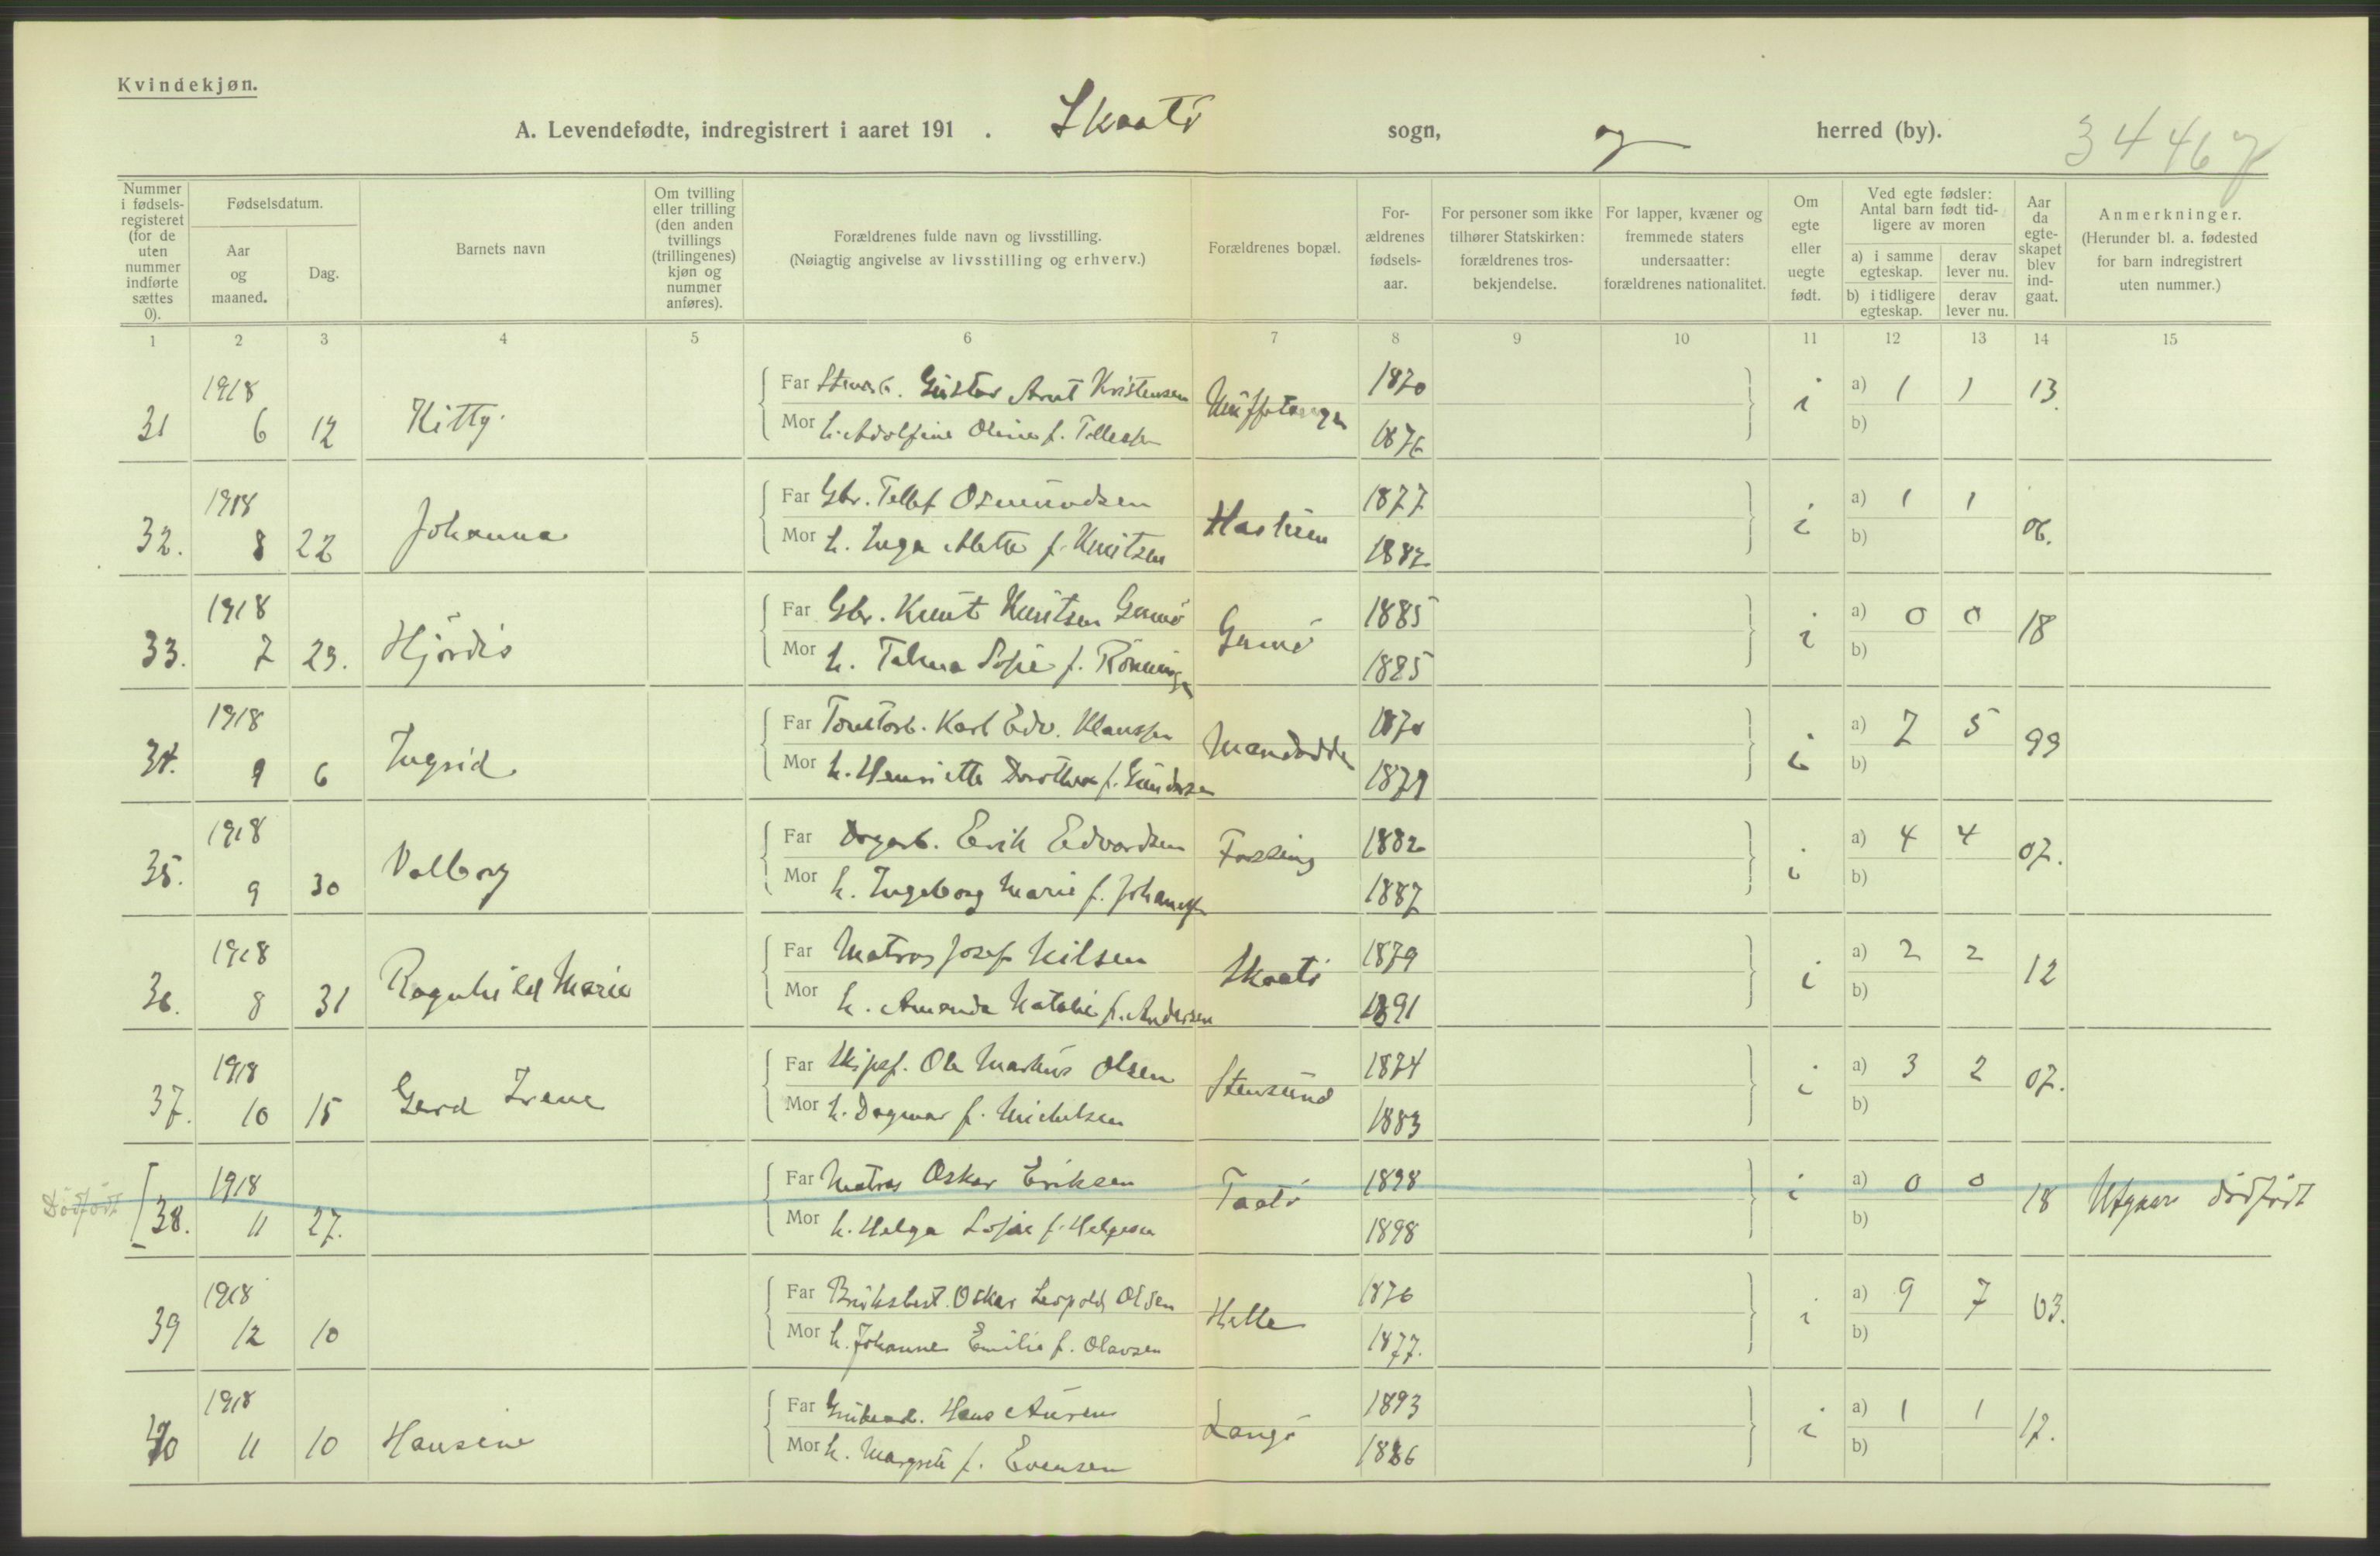 Kvindekjøn.
A. Levendefødte, indregistrert i aaret 191 . Skaatö sogn, og herred (by). 34467
Nummer i fødsels-registeret (for de uten nummer indførte sættes 0).
Fødselsdatum.
Aar og maaned.
Dag.
Barnets navn
Om tvilling eller trilling (den anden tvillings (trillingenes) kjøn og nummer anføres).
Forældrenes fulde navn og livsstilling.
(Nøiagtig angivelse av livsstilling og erhverv.)
Forældrenes bopæl.
For-ældrenes fødsels-aar.
For personer som ikke tilhører Statskirken: forældrenes tros-bekjendelse.
For lapper, kvæner og fremmede staters undersaatter: forældrenes nationalitet.
Om egte eller uegte født.
Ved egte fødsler: Antal barn født tid-ligere av moren
a) i samme egteskap.
derav lever nu.
b) i tidligere egteskap.
derav lever nu.
Aar da egte-skapet blev ind-gaat.
Anmerkninger.
(Herunder bl. a. fødested for barn indregistrert uten nummer.)
1 2 3 4 5 6 7 8 9 10 11 12 13 14 15
31 1918 6 12 Kitty
Far Gustav Arnt Kristensen 1870 i a) 1 1 13.
Mor h. Adolfine Oline f. Tollefsen 1876 b)
32. 1918 8 22 Johanna
Far Gbr. Tellef Osmundsen 1877 i a) 1 1 06.
Mor h. Inga Alette f. Knutsen 1882 b)
33. 1918 7 23. Hjördis
Far Gbr. Knut Knutsen Gumö Gumö 1885 i a) 0 0 18
Mor h. Talma Sofie f. Rönningen 1885 b)
34. 1918 9 6 Ingrid
Far Karl Edv. Klaussen 1870 i a) 7 5 99
Mor h. Henriette Dorothea f. Gundersen 1879 b)
35. 1918 9 30 Valborg
Far Dagarb. Erik Edvardsen Fossing 1882 i a) 4 4 07.
Mor h. Ingeborg Marie f. Johansen 1887 b)
36. 1918 8 31 Ragnhild Marie
Far Matros Josef Nilsen Skaatö 1879 i a) 2 2 12
Mor h. Amanda Natalie f. Andersen 1891 b)
37. 1918 10 15 Gerd Irene
Far Skipsf. Ole Markus Olsen Stensund 1874 i a) 3 2 07.
Mor h. Dagmar f. Michelsen 1883 b)
Dödfödt [38. 1918 11 27.
Far Matros Oskar Eriksen Taatö 1898 i a) 0 0 18 Utgaar dödfödt
Mor h. Helga Sofie f. Helgesen 1898 b)
39 1918 12 10
Far Bruksbest. Oskar Leopold Olsen Helle 1876 i a) 9 7 03.
Mor h. Johanne Emilie f. Olavsen 1877. b)
40 1918 11 10 Hansine
Far Grubearb. Hans Auren Langö 1893 i a) 1 1 17.
Mor h. Margrete f. Evensen 1886 b)